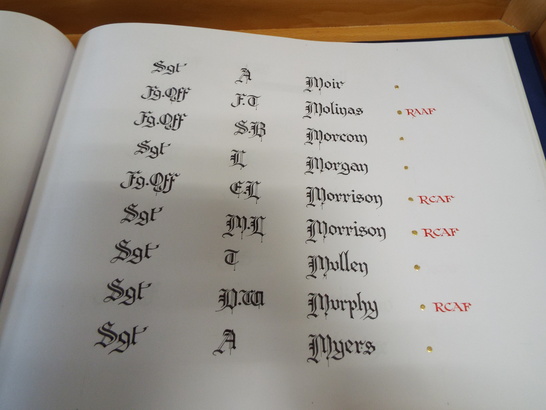 Sgt A Moir
Fg.Off F.T Molinas RAAF
Fg.Off S.B Morcom
Sgt L Morgan
Fg.Off E.L Morrison RCAF
Sgt M.L Morrison RCAF
Sgt T Mullen
Sgt D.W Murphy RCAF
Sgt A Myers